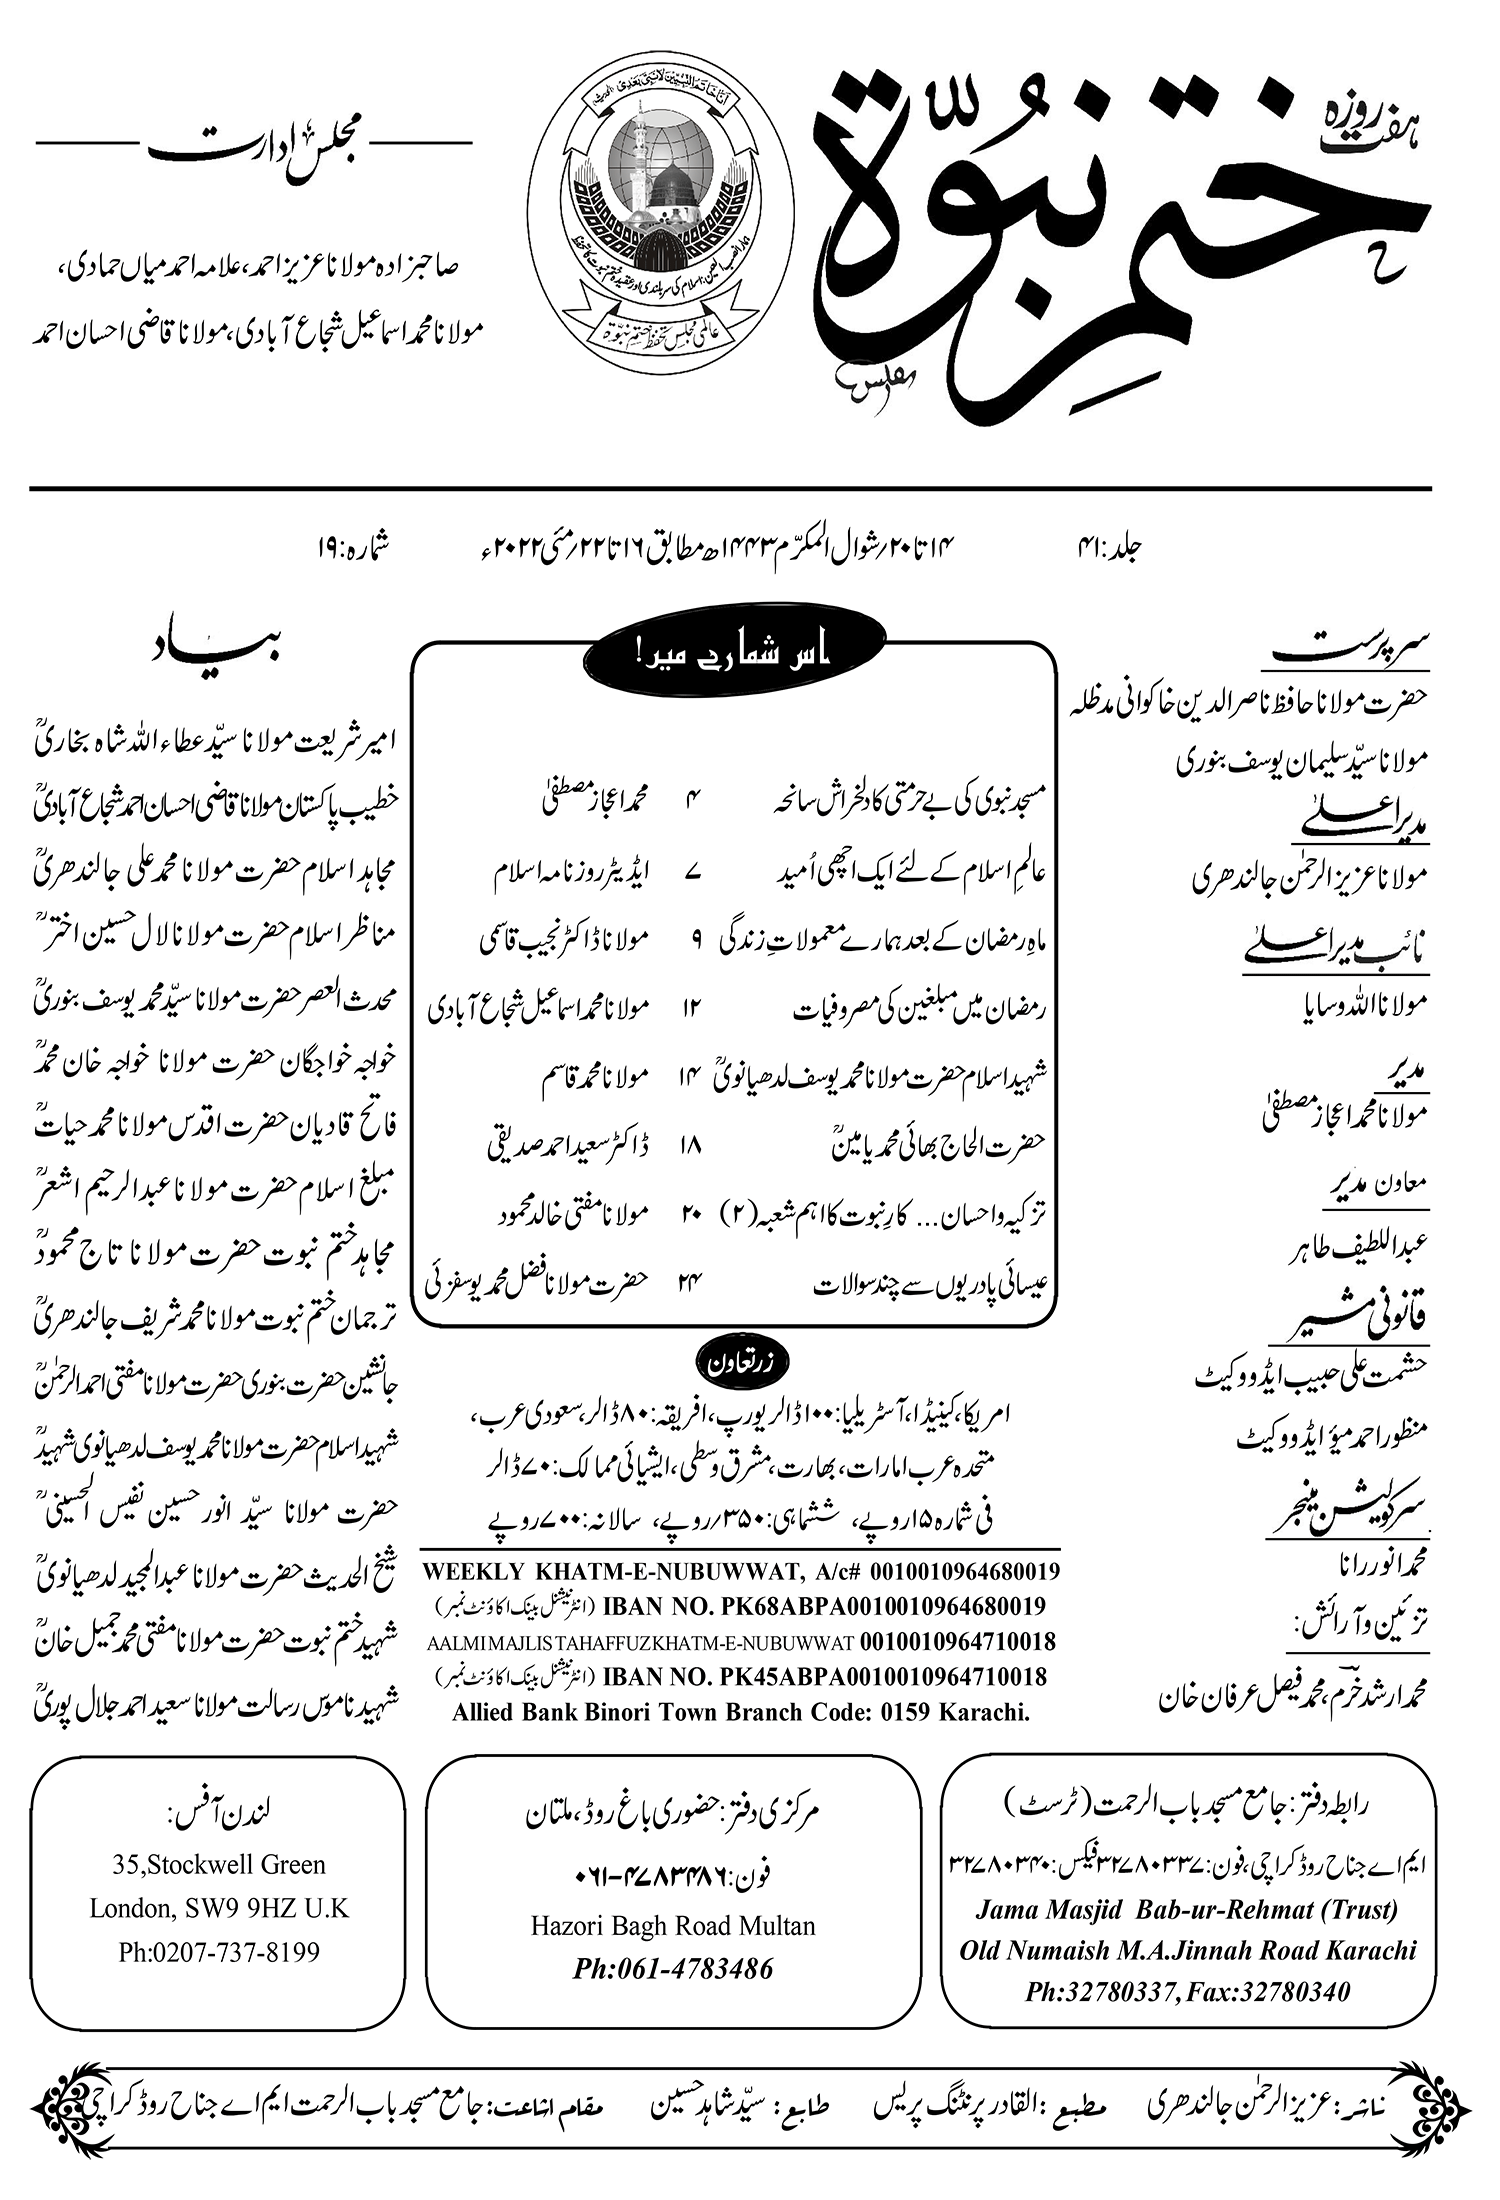 ہفت روزہ
ختم نبوّۃ
انا خاتم النبیین لا نبی بعدی
ہمارا نصب العین: اسلام کی سربلندی اور عقیدہ ختم نبوت کا تحفظ
عالمی مجلس تحفظ ختم نبوّۃ
مجلس ادارت
صاحبزادہ مولانا عزیز احمد، علامہ احمد میاں حمادی،
مولانا محمد اسماعیل شجاع آبادی، مولانا قاضی احسان احمد
جلد: ۴۱
۱۴ تا ۲۰/ شوال المکرّم ۱۴۴۳ھ مطابق ۱۶ تا ۲۲/ مئی ۲۰۲۲ء
شمارہ: ۱۹
سرپرست
حضرت مولانا حافظ ناصر الدین خاکوانی مدظلہ
مولانا سیّد سلیمان یوسف بنوری
مدیر اعلےٰ
مولانا عزیز الرحمٰن جالندھری
نائب مدیر اعلےٰ
مولانا اللہ وسایا
مدیر
مولانا محمد اعجاز مصطفیٰ
معاون مدیر
عبداللطیف طاہر
قانونی مشیر
حشمت علی حبیب ایڈووکیٹ
منظور احمد میؤ ایڈووکیٹ
سرکولیشن مینجر
محمد انور رانا
تزئین و آرائش:
محمد ارشد خرم، محمد فیصل عرفان خان
اس شمارے میں!
مسجد نبوی کی بے حرمتی کا دلخراش سانحہ ۴ محمد اعجاز مصطفیٰ
عالمِ اسلام کے لئے ایک اچھی اُمید ۷ ایڈیٹر روزنامہ اسلام
ماہِ رمضان کے بعد ہمارے معمولاتِ زندگی ۹ مولانا ڈاکٹر نجیب قاسمی
رمضان میں مبلغین کی مصروفیات ۱۲ مولانا محمد اسماعیل شجاع آبادی
شہید اسلام حضرت مولانا محمد یوسف لدھیانویؒ ۱۴ مولانا محمد قاسم
حضرت الحاج بھائی محمد یامینؒ ۱۸ ڈاکٹر سعید احمد صدیقی
تزکیہ و احسان... کارِ نبوت کا اہم شعبہ (۲) ۲۰ مولانا مفتی خالد محمود
عیسائی پادریوں سے چند سوالات ۲۴ حضرت مولانا فضل محمد یوسفزئی
زرتعاون
امریکا، کینیڈا، آسٹریلیا: ۱۰۰ ڈالر یورپ، افریقہ: ۸۰ ڈالر، سعودی عرب،
متحدہ عرب امارات، بھارت، مشرق وسطی، ایشیائی ممالک: ۷۰ ڈالر
فی شمارہ ۱۵ روپے، ششماہی: ۳۵۰/ روپے، سالانہ: ۷۰۰ روپے
WEEKLY KHATM-E-NUBUWWAT, A/c# 0010010964680019
IBAN NO. PK68ABPA0010010964680019 (انٹرنیشنل بینک اکاؤنٹ نمبر)
AALMI MAJLIS TAHAFFUZ KHATM-E-NUBUWWAT 0010010964710018
IBAN NO. PK45ABPA0010010964710018 (انٹرنیشنل بینک اکاؤنٹ نمبر)
Allied Bank Binori Town Branch Code: 0159 Karachi.
بیاد
امیر شریعت مولانا سیّد عطاء اللہ شاہ بخاریؒ
خطیب پاکستان مولانا قاضی احسان احمد شجاع آبادیؒ
مجاہد اسلام حضرت مولانا محمد علی جالندھریؒ
مناظر اسلام حضرت مولانا لال حسین اخترؒ
محدث العصر حضرت مولانا سیّد محمد یوسف بنوریؒ
خواجہ خواجگان حضرت مولانا خواجہ خان محمدؒ
فاتح قادیان حضرت اقدس مولانا محمد حیاتؒ
مبلغ اسلام حضرت مولانا عبد الرحیم اشعرؒ
مجاہد ختم نبوت حضرت مولانا تاج محمودؒ
ترجمان ختم نبوت مولانا محمد شریف جالندھریؒ
جانشین حضرت بنوری حضرت مولانا مفتی احمد الرحمٰنؒ
شہید اسلام حضرت مولانا محمد یوسف لدھیانوی شہیدؒ
حضرت مولانا سیّد انور حسین نفیس الحسینیؒ
شیخ الحدیث حضرت مولانا عبدالمجید لدھیانویؒ
شہید ختم نبوت حضرت مولانا مفتی محمد جمیل خانؒ
شہید ناموس رسالت مولانا سعید احمد جلال پوریؒ
رابطہ دفتر: جامع مسجد باب الرحمت (ٹرسٹ)
ایم اے جناح روڈ کراچی، فون: ۳۲۷۸۰۳۳۷ فیکس: ۳۲۷۸۰۳۴۰
Jama Masjid Bab-ur-Rehmat (Trust)
Old Numaish M.A.Jinnah Road Karachi
Ph:32780337, Fax:32780340
مرکزی دفتر: حضوری باغ روڈ، ملتان
فون: ۰۶۱-۴۷۸۳۴۸۶
Hazori Bagh Road Multan
Ph:061-4783486
لندن آفس:
35,Stockwell Green
London, SW9 9HZ U.K
Ph:0207-737-8199
ناشر: عزیز الرحمٰن جالندھری مطبع: القادر پرنٹنگ پریس طابع: سیّد شاہد حسین مقام اشاعت: جامع مسجد باب الرحمت ایم اے جناح روڈ کراچی